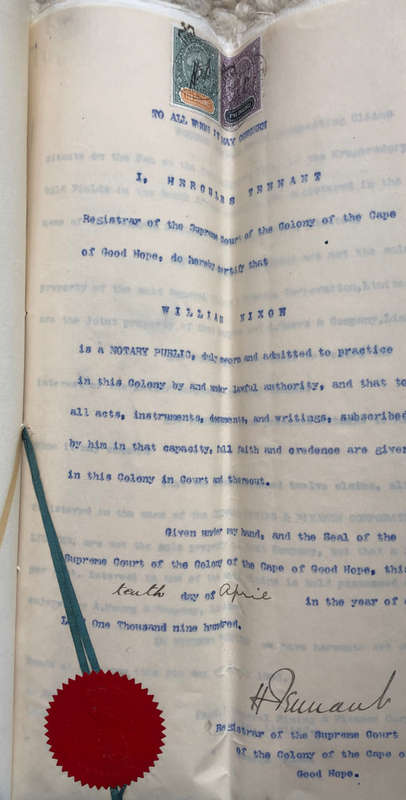 TO ALL WHOM IT MAY CONCERN
I, HERCULES TENNANT
Registrar of the Supreme Court of the Colony of the Cape
of Good Hope, do hereby certify that
WILLIAM NIXON
is a NOTARY PUBLIC, duly sworn and admitted to practice
in this Colony by and under lawful authority, and that to
all acts, instruments, documents, and writings, subscribed
by him in that capacity, full faith and credence are given
in this Colony in Court and thereout.
Given under my hand, and the Seal of the
Supreme Court of the Colony of the Cape of Good Hope, this
tenth day of April in the year of
One Thousand nine hundred.
HTennant
Registrar of the Supreme Court
of the Colony of the Cape of
Good Hope.